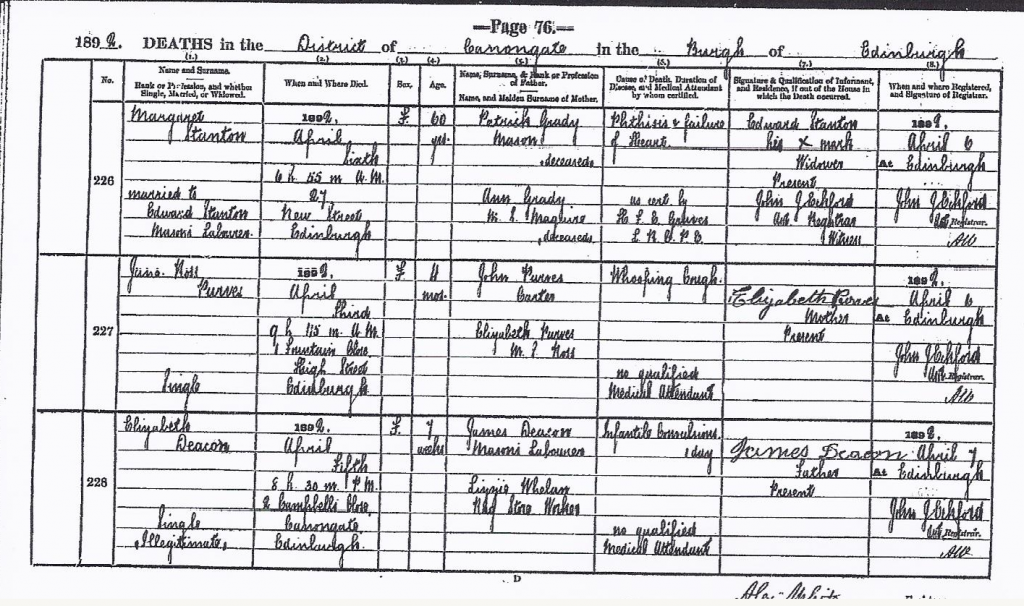 Page 76.
1892. DEATHS in the District of Canongate in the Burgh of Edinburgh
No.
(1.)
Name and Surname.
Rank or Profession, and whether
Single, Married, or Widowed.
(2.)
When and Where Died.
(3.)
Sex.
(4.)
Age.
(5.)
Name, Surname, & Rank or Profession
of Father.
Name, and Maiden Surname of Mother.
(6.)
Cause of Death, Duration of
Disease, and Medical Attendant
by whom certified.
(7.)
Signature & Qualification of Informant,
and Residence, if out of the House in
which the Death occurred.
(8.)
When and where Registered,
and Signature of Registrar.
226
Margaret
Stanton
married to
Edward Stanton
Masons Labourer
1892,
April
Sixth
6 h. 55 m. A.M.
27
New Street
Edinburgh
F.
60
yrs.
Patrick Grady
Mason
deceased
Ann Grady
M. S. Maguire
deceased
Phthisis & failure
of Heart
as cert by
L. R. C. P. E.
Edward Stanton
his x mark
Widower
Present
John J Eckford
Ast. Registrar
Witness
1892,
April 6
At Edinburgh
John J Eckford
Ast. Registrar.
227
Jane Ross
Purves
Single
1892,
April
Third
9 h. 115 m. A.M.
1 Fountain Close
High Street
Edinburgh
F.
4
mos.
John Purves
Carter
Elizabeth Purves
M. S. Ross
Whooping Cough.
no qualified
Medical Attendant
Elizabeth Purves
Mother
Present
1892,
April 6
At Edinburgh
John J Eckford
Ast. Registrar.
228
Elizabeth
Deacon
Single
Illegitimate
1892,
April
Fifth
8 h. 30 m. P.M.
2 Campbells Close
Canongate
Edinburgh.
F.
7
weeks
James Deacon
Masons Labourer
Lizzie Whelan
Rag Store Worker
Infantile Convulsions.
1 day
no qualified
Medical Attendant
James Deacon
Father
Present
1892,
April 7
At Edinburgh
John J Eckford
Ast. Registrar.
D